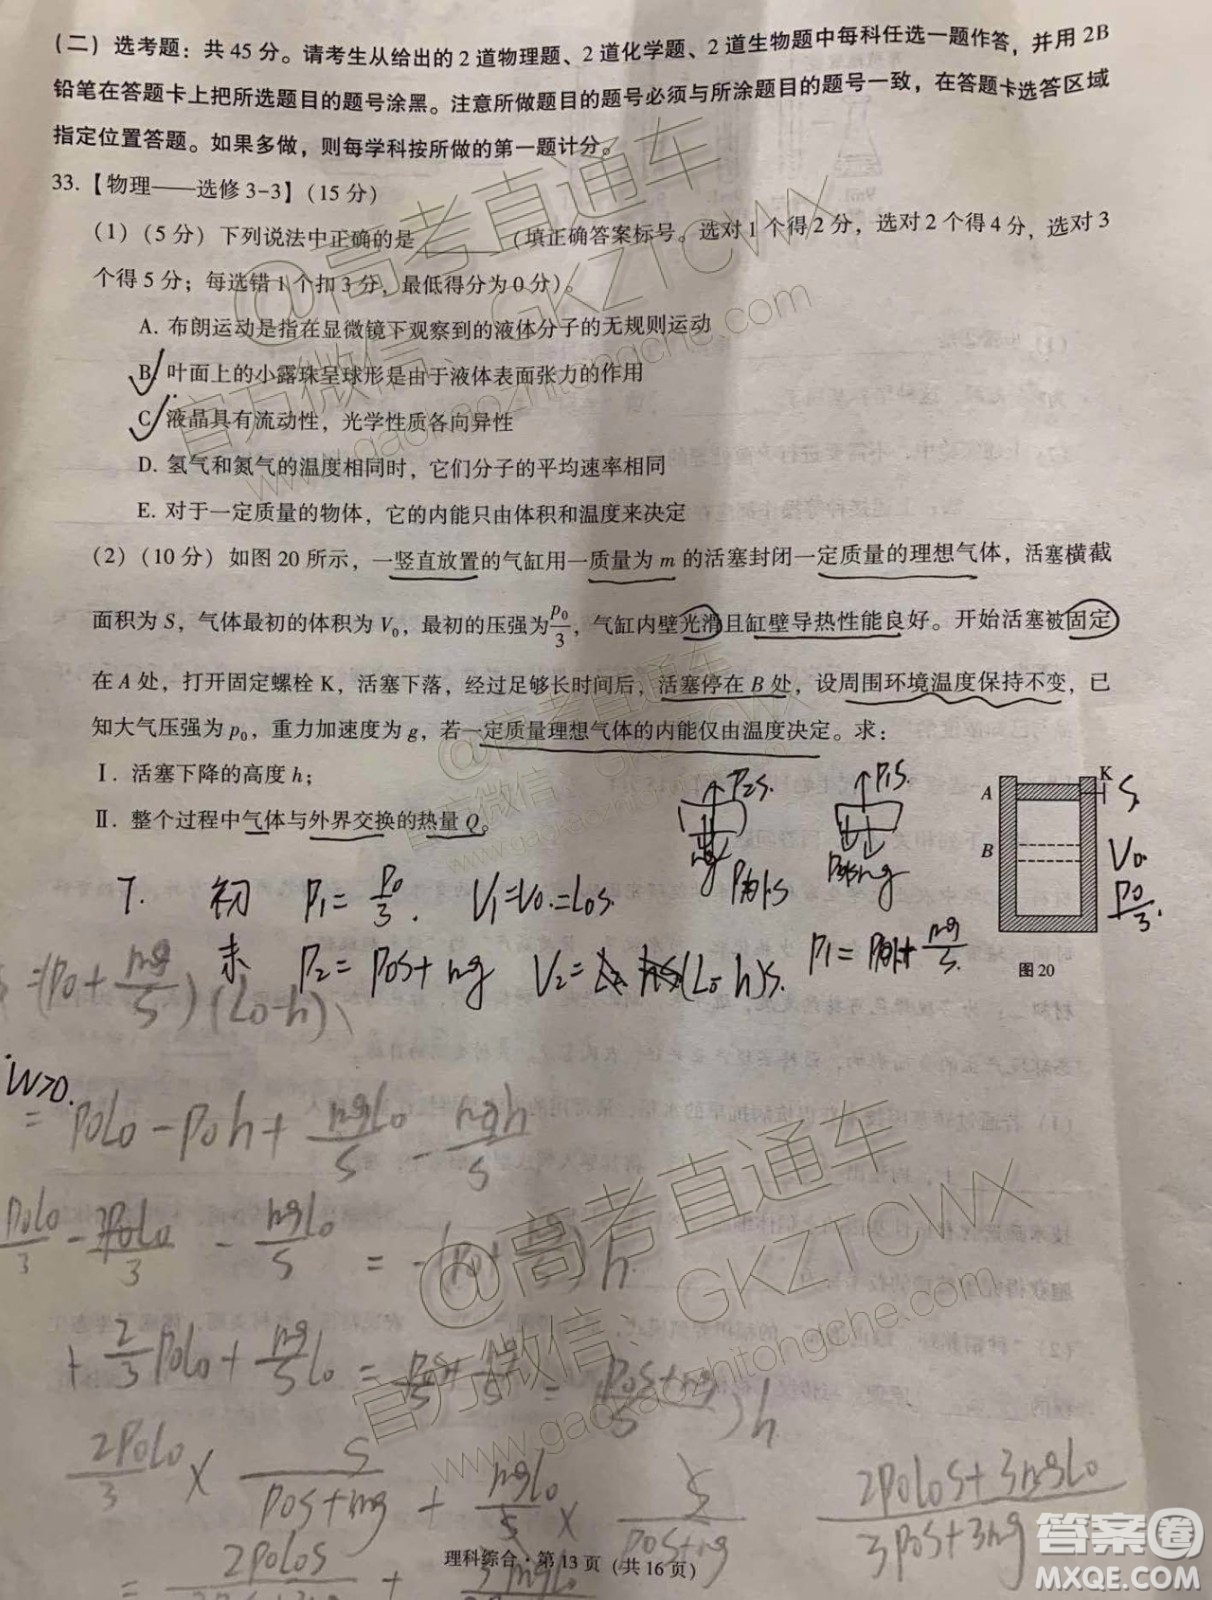 (二)选考题：共45分。请考生从给出的2道物理题、2道化学题、2道生物题中每科任选一题作答，并用2B
铅笔在答题卡上把所选题目的题号涂黑。注意所做题目的题号必须与所涂题目的题号一致，在答题卡选答区域
指定位置答题。如果多做，则每学科按所做的第一题计分。
33.【物理——选修3-3】(15分)
(1)(5分)下列说法中正确的是________(填正确答案标号。选对1个得2分，选对2个得4分，选对3
个得5分；每选错1个扣3分，最低得分为0分)。
A. 布朗运动是指在显微镜下观察到的液体分子的无规则运动
B. 叶面上的小露珠呈球形是由于液体表面张力的作用
C. 液晶具有流动性，光学性质各向异性
D. 氢气和氮气的温度相同时，它们分子的平均速率相同
E. 对于一定质量的物体，它的内能只由体积和温度来决定
(2)(10分)如图20所示，一竖直放置的气缸用一质量为m的活塞封闭一定质量的理想气体，活塞横截
面积为S，气体最初的体积为V₀，最初的压强为p₀/3，气缸内壁光滑且缸壁导热性能良好。开始活塞被固定
在A处，打开固定螺栓K，活塞下落，经过足够长时间后，活塞停在B处，设周围环境温度保持不变，已
知大气压强为p₀，重力加速度为g，若一定质量理想气体的内能仅由温度决定。求：
Ⅰ. 活塞下降的高度h；
Ⅱ. 整个过程中气体与外界交换的热量Q。
A K S
B V₀
p₀/3
图20
P₂S P₁S
mg
初 P₁=P₀/3. V₁=V₀=L₀S.
末 P₂=P₀S+mg V₂=(L₀-h)S.
=(P₀+mg/S)(L₀-h)
W>0.
=P₀L₀-P₀h+mgL₀/S-mgh/S
P₀L₀/3-3P₀L₀/3-mgL₀/S=-(P₀+mg/S)h
+2/3P₀L₀+mg/S L₀= =(P₀S+mg/S)h
2P₀L₀/3×S/(P₀S+mg)+mgL₀/S×S/(P₀S+mg)
(2P₀L₀S+3mgL₀)/(3P₀S+3mg)
理科综合·第13页(共16页)
@高考直通车
官方微信：GKZTCWX
www.gaokaozhitongche.com
@高考直通车
官方微信：
www.gaokaozhitongche.com
@高考直通车
官方微信：GKZTCWX
www.gaokaozhitongche.com
答案圈
MXQE.COM